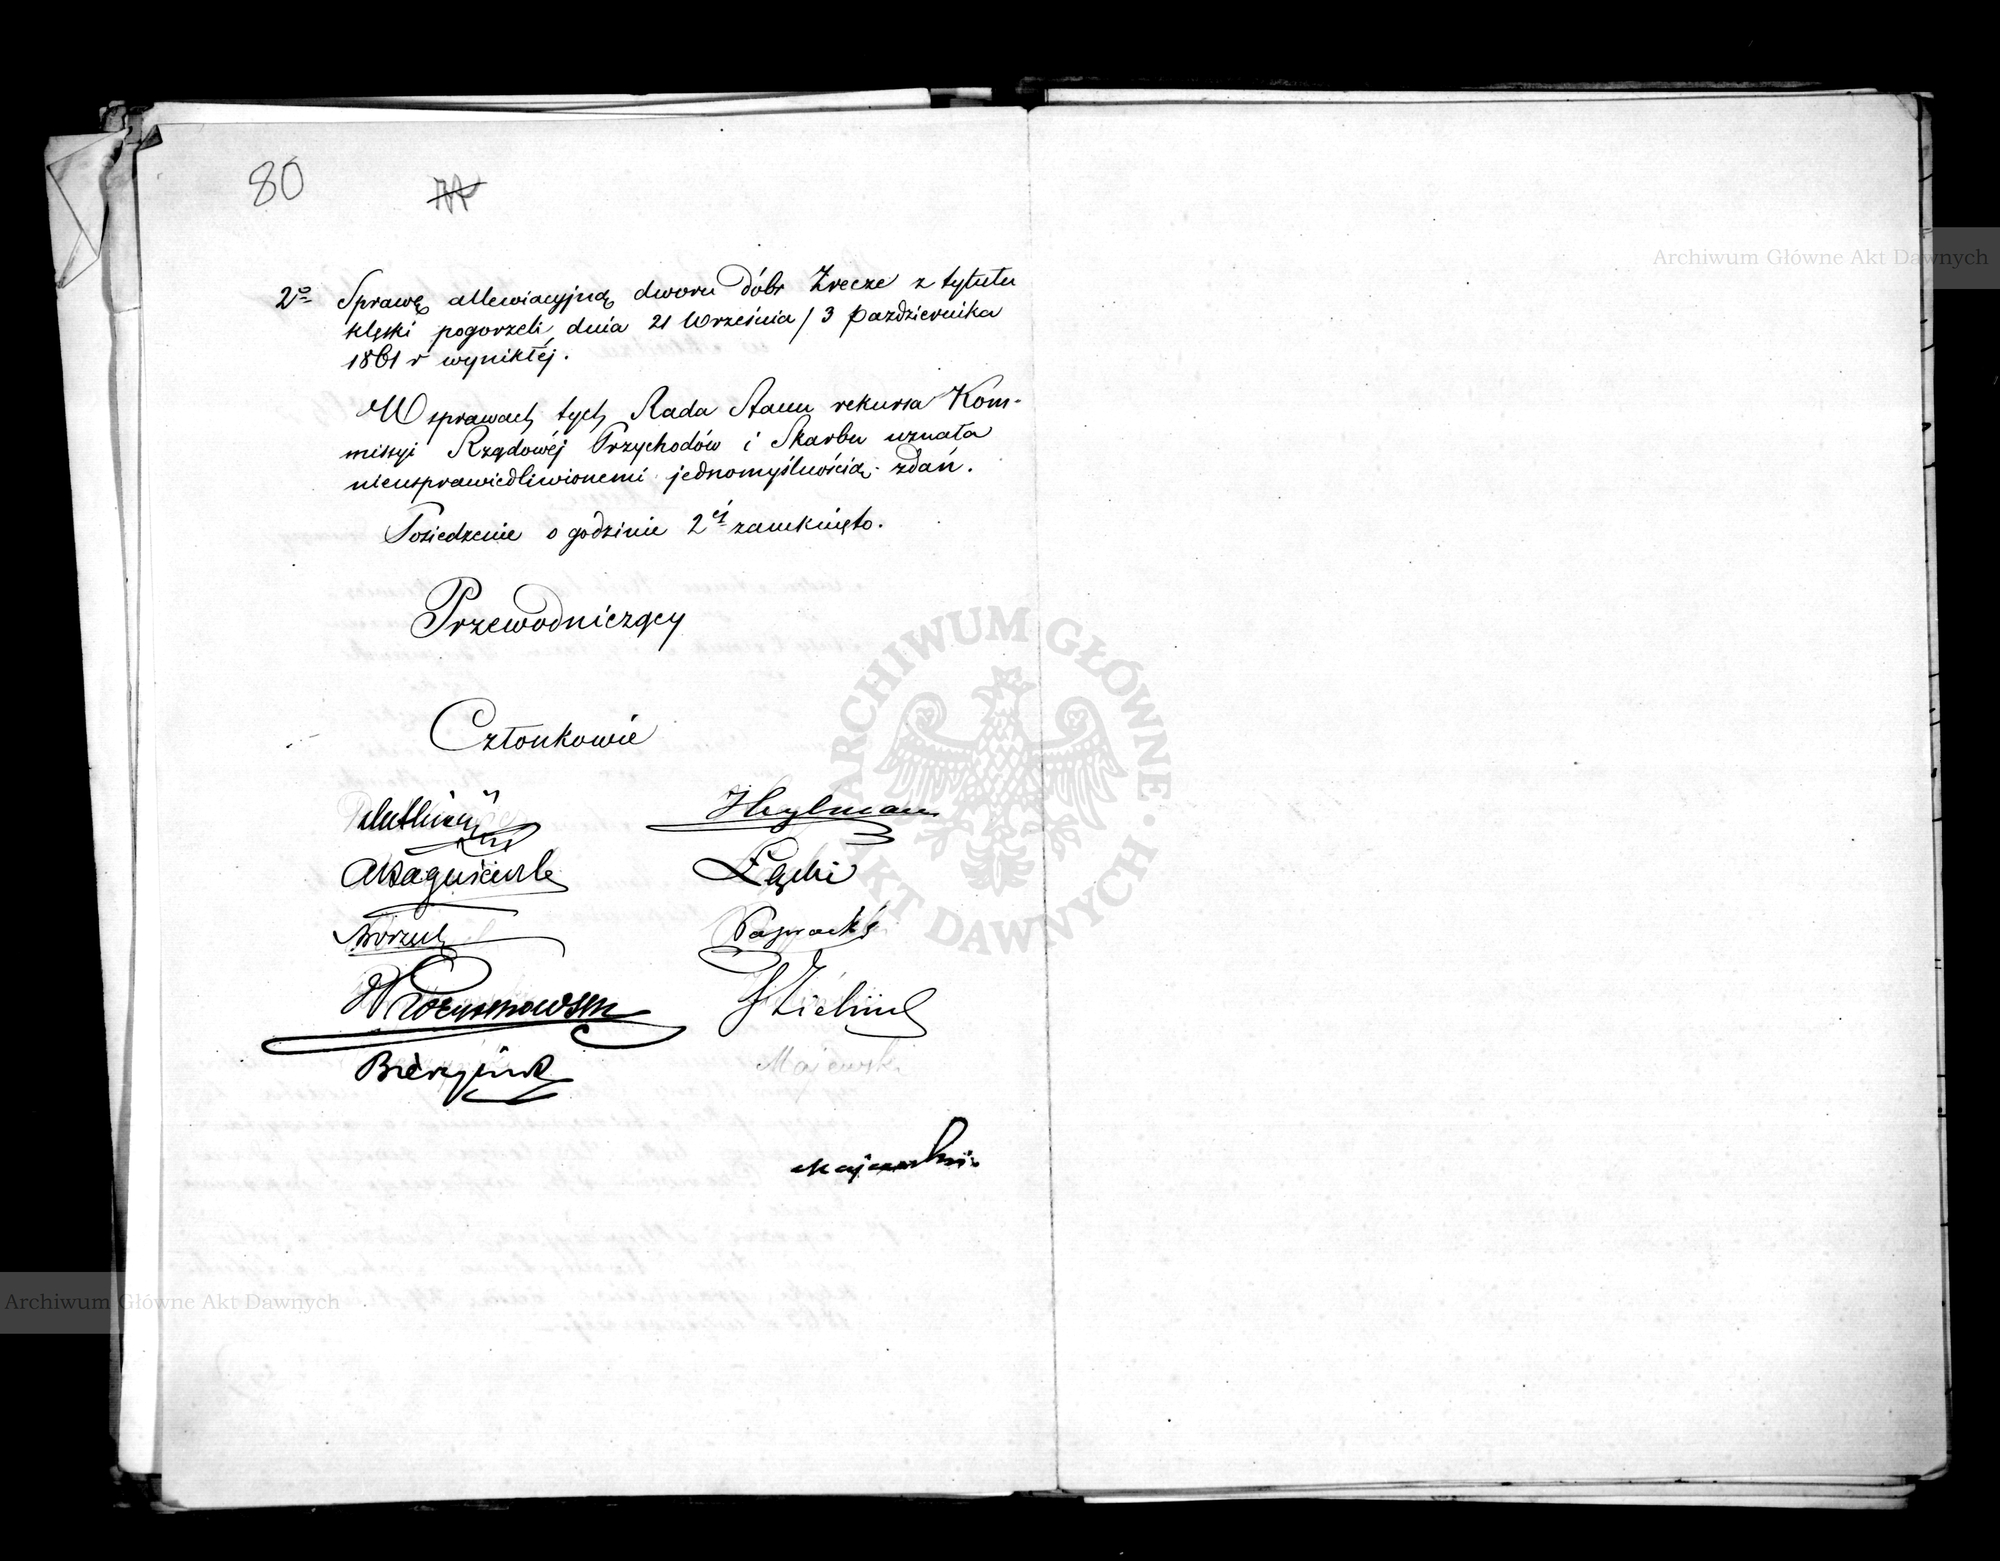 80
2o Sprawę allewiacyjną dworu dóbr Zrecze z tytułu
klęski pogorzeli dnia 21 Września / 3 Października
1861 r wynikłéj.
W sprawach tych Rada Stanu rekursa Kom-
missyi Rządowéj Przychodów i Skarbu uznała
nieusprawiedliwionemi jednomyślnością zdań.
Posiedzenie o godzinie 2éj zamknięto.
Przewodniczący
Członkowie
Heylman
Łąski
Paprocki
Zieliński
Majewski
Majewski
ARCHIWUM GŁÓWNE AKT DAWNYCH
Archiwum Główne Akt Dawnych
Archiwum Główne Akt Dawnych